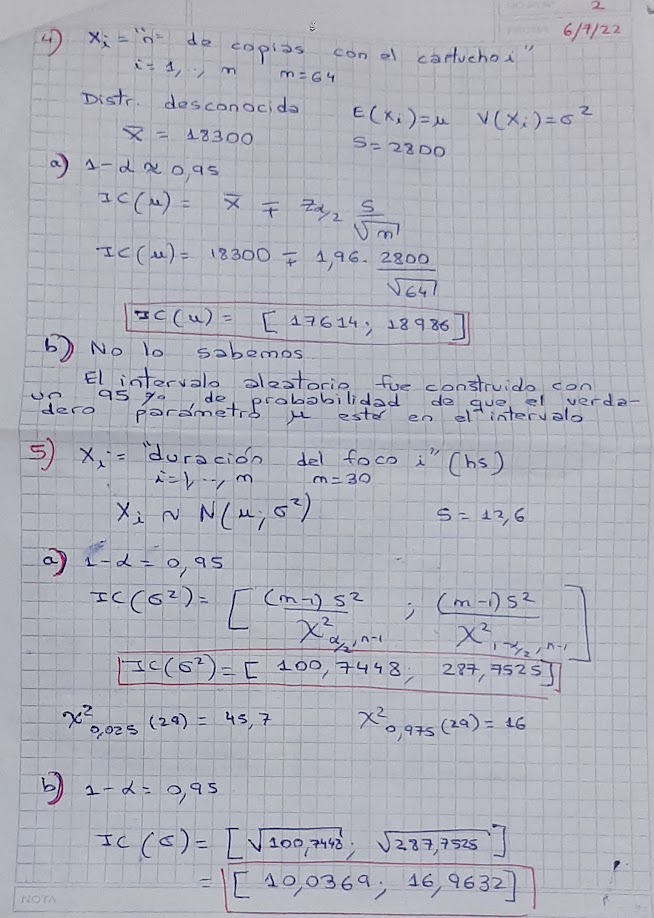 2
6/7/22
4) Xi = "nº de copias con el cartucho i"
i = 1, .., n n = 64
Distr. desconocida E(Xi) = μ V(Xi) = σ²
x̄ = 18300 S = 2800
a) 1-α ≈ 0,95
IC(μ) = x̄ ∓ Zα/2 S/√n
IC(μ) = 18300 ∓ 1,96 . 2800/√64
IC(μ) = [17614; 18986]
b) No lo sabemos
El intervalo aleatorio fue construido con
un 95 % de probabilidad de que el verda-
dero parámetro μ esté en el intervalo
5) Xi = "duración del foco i" (hs)
i = 1, .., n n = 30
Xi ~ N(μ; σ²) S = 12,6
a) 1-α = 0,95
IC(σ²) = [(n-1) S²/X²α/2, n-1 ; (n-1) S²/X²1-α/2, n-1]
IC(σ²) = [100,7448; 287,7525]
X²0,025 (29) = 45,7 X²0,975 (29) = 16
b) 1-α = 0,95
IC(σ) = [√100,7448; √287,7525]
= [10,0369; 16,9632]
NOTA